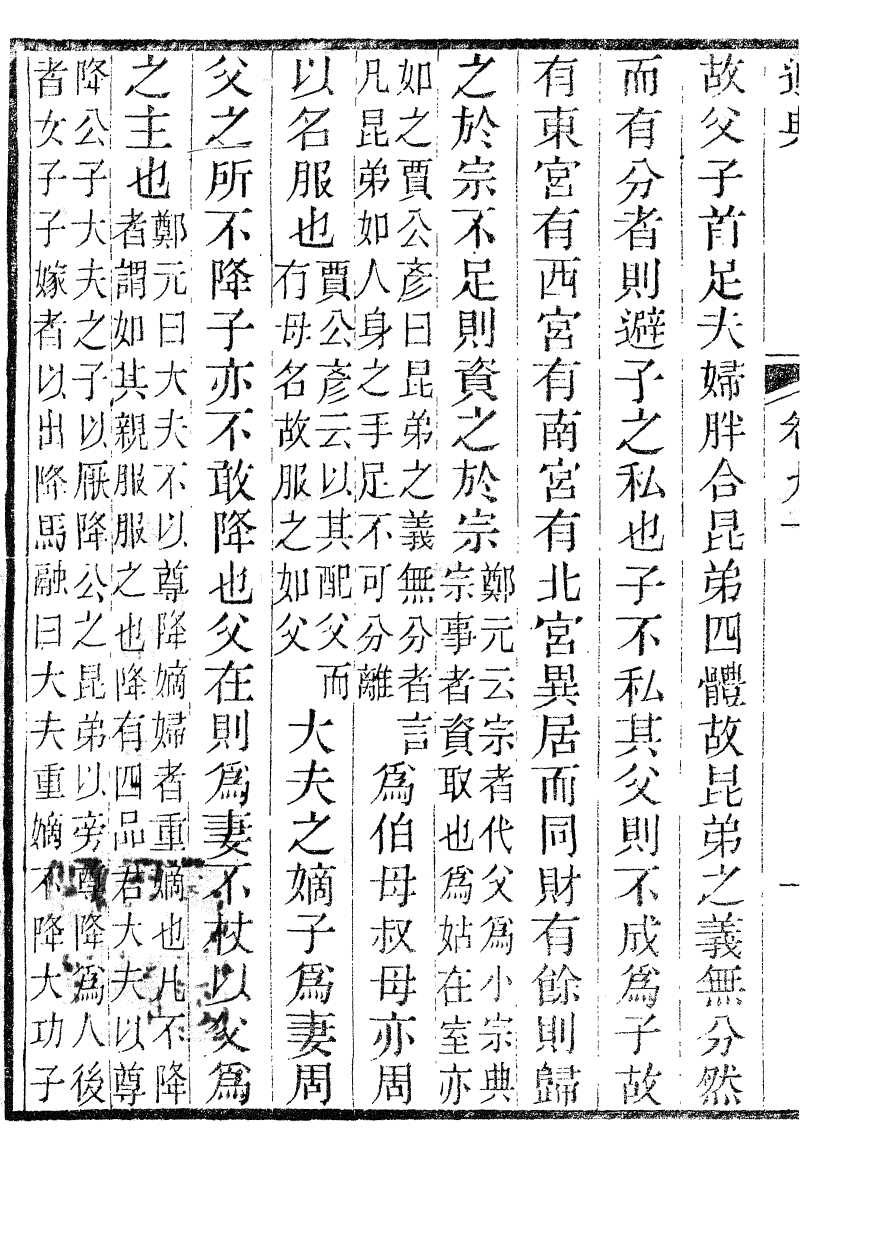 通典
卷九
一
故父子首足夫婦胖合昆弟四體故昆弟之義無分然
而有分者則避子之私也子不私其父則不成爲子故
有東宮有西宮有南宮有北宮異居而同財有餘則歸
之於宗不足則資之於宗
鄭元云宗者代父爲小宗典
宗事者資取也爲姑在室亦
如之賈公彥曰昆弟之義無分者言
凡昆弟如人身之手足不可分離
爲伯母叔母亦周
以名服也
賈公彥云以其配父而
有母名故服之如父
大夫之嫡子爲妻周
父之所不降子亦不敢降也父在則爲妻不杖以父爲
之主也
鄭元曰大夫不以尊降嫡婦者重嫡也凡不降
者謂如其親服服之也降有四品君大夫以尊
降公子大夫之子以厭降公之昆弟以旁尊降爲人後
者女子子嫁者以出降馬融曰大夫重嫡不降大功子